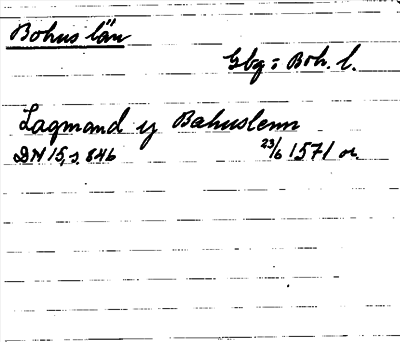 Bohus län
Gbg o Boh. l.
Lagmand y Bahuslenn
DN 15, s. 846 23/6 1571 or.